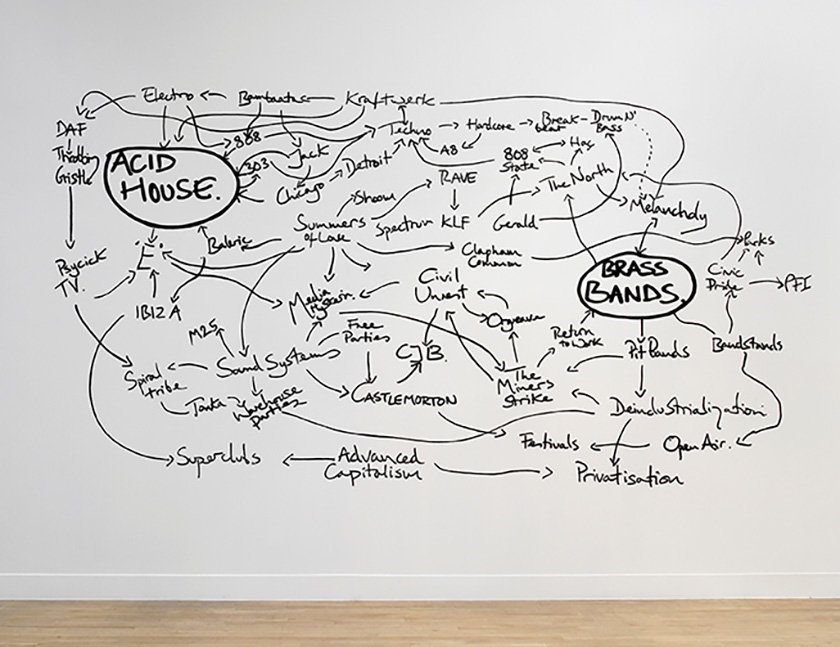 Electro
Bambaataa
Kraftwerk
DAF
808
Techno
Hardcore
Break-
beat
Drum N'
Bass
Throbbing
Gristle
ACID
HOUSE.
303
Jack
Detroit
A8
808
State
Hac
Chicago
Shoom
RAVE
The North
Melancholy
Summers
of Love
Spectrum
KLF
Gerald
Balearic
'E'
Clapham
Common
Parks
Psychick
TV.
IBIZA
Media
Hysteria.
Civil
Unrest
BRASS
BANDS.
Civic
Pride
PFI
M25
Free
Parties
CJB.
Orgreave
Return
to Work
Pit Bands
Bandstands
Spiral
tribe
Sound Systems
Tonka
Warehouse
parties
CASTLEMORTON
The
Miners
Strike
Deindustrialization
Festivals
Open Air.
Superclubs
Advanced
Capitalism
Privatisation